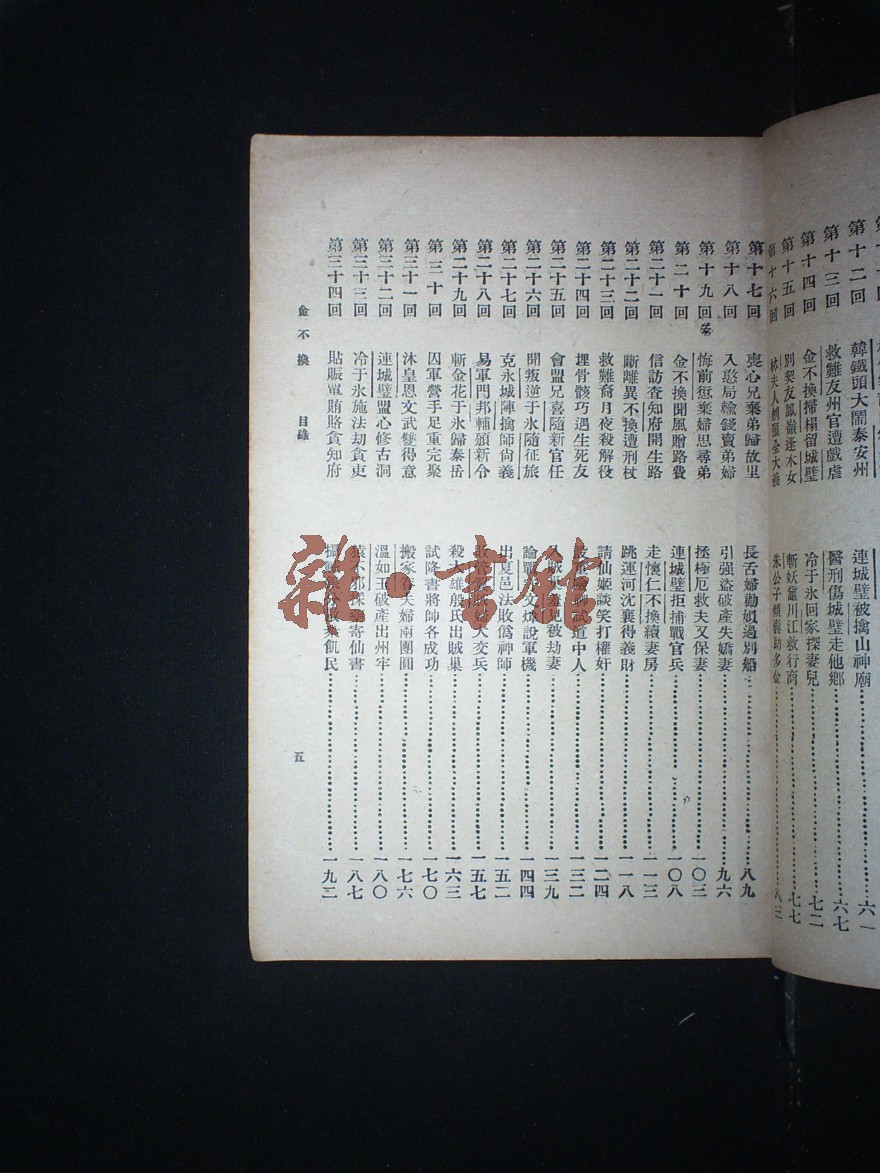 第十二回 韓鐵頭大鬧泰安州 連城璧被擒山神廟 六一
第十三回 救難友州官遭戲虐 醫刑傷城璧走他鄉 六七
第十四回 金不換掃榻留城璧 冷于氷回家探妻兒 七二
第十五回 別契友鳳嶺逢木女 斬妖黿川江救行商 七七
第十六回 林夫人刎頸全大義 朱公子傾囊助多金 八三
第十七回 喪心兄棄弟歸故里 長舌婦勸姐過別船 八九
第十八回 入憨局輸錢賣弟婦 引强盜破產失嬌妻 九六
第十九回 悔前愆棄婦思尋弟 拯極厄救夫又保妻 一〇三
第二十回 金不換聞風贈路費 連城璧拒捕戰官兵 一〇八
第二十一回 信訪查知府開生路 走懷仁不換續妻房 一一三
第二十二回 斷離異不換遭刑杖 跳運河沈襄得義財 一一八
第二十三回 救難裔月夜殺解役 請仙姬談笑打權奸 一二四
第二十四回 埋骨骸巧遇生死友 試道中人 一三二
第二十五回 會盟兄喜隨新官任 被劫妻 一三九
第二十六回 開叛逆于氷隨征旅 論戰 文煒說軍機 一四四
第二十七回 克永城陣擒師尙義 出夏邑法敗僞神師 一五二
第二十八回 易軍門邦輔頒新令 敗管 婦大交兵 一五七
第二十九回 斬金花于氷歸泰岳 殺大雄殷氏出賊巢 一六三
第三十回 囚軍營手足重完聚 試降書將帥各成功 一七〇
第三十一回 沐皇恩文武雙得意 搬家眷夫婦兩團圓 一七六
第三十二回 連城璧盟心修古洞 溫如玉破產出州牢 一八〇
第三十三回 冷于氷施法劫貪吏 猿不邪採藥寄仙書 一八七
第三十四回 貼賑單賄賂貪知府 飢民 一九二
金不換 目錄 五
雜·書館